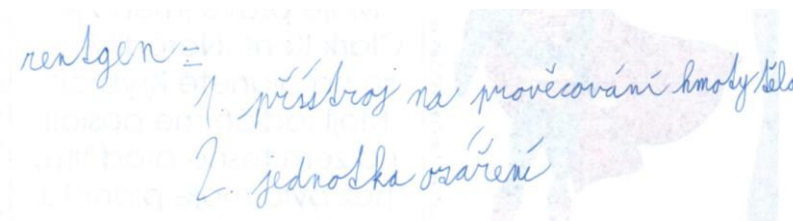 rentgen =
1. přístroj na prověcování hmoty/těla
2. jednotka ozáření